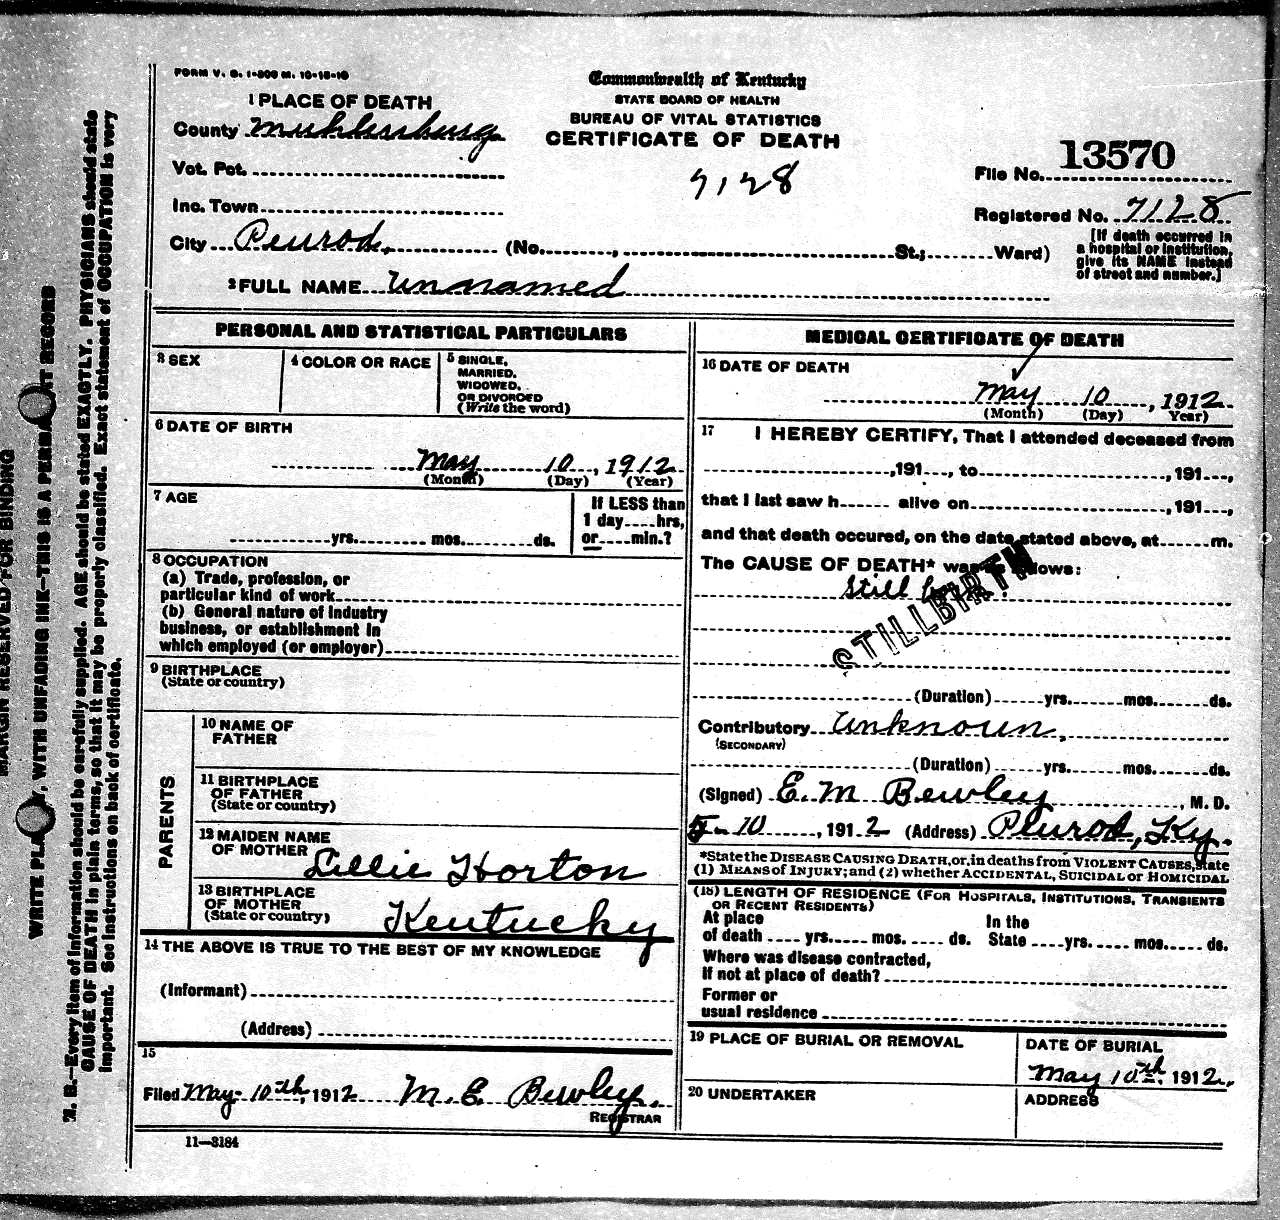 FORM V. S. 1-800 M. 10-15-10
Commonwealth of Kentucky
STATE BOARD OF HEALTH
BUREAU OF VITAL STATISTICS
CERTIFICATE OF DEATH
7128
1 PLACE OF DEATH
County Muhlenburg
Vot. Pct.
Inc. Town
City Penrod, (No. , St.; Ward)
File No. 13570
Registered No. 7128
[If death occurred in
a hospital or institution,
give its NAME instead
of street and number.]
2 FULL NAME Unnamed
PERSONAL AND STATISTICAL PARTICULARS
3 SEX
4 COLOR OR RACE
5 SINGLE,
MARRIED,
WIDOWED,
OR DIVORCED
(Write the word)
6 DATE OF BIRTH
May 10, 1912
(Month) (Day) (Year)
7 AGE
yrs. mos. ds.
If LESS than
1 day hrs,
or min.?
8 OCCUPATION
(a) Trade, profession, or
particular kind of work
(b) General nature of industry
business, or establishment in
which employed (or employer)
9 BIRTHPLACE
(State or country)
PARENTS
10 NAME OF
FATHER
11 BIRTHPLACE
OF FATHER
(State or country)
12 MAIDEN NAME
OF MOTHER Lillie Horton
13 BIRTHPLACE
OF MOTHER
(State or country) Kentucky
14 THE ABOVE IS TRUE TO THE BEST OF MY KNOWLEDGE
(Informant)
(Address)
15
Filed May 10th, 1912 M. E. Bewley.
REGISTRAR
11—3184
MEDICAL CERTIFICATE OF DEATH
16 DATE OF DEATH
May 10, 1912
(Month) (Day) (Year)
17 I HEREBY CERTIFY, That I attended deceased from
, 191 , to , 191 ,
that I last saw h alive on , 191 ,
and that death occured, on the date stated above, at m.
The CAUSE OF DEATH* was as follows:
Still
STILLBIRTH
(Duration) yrs. mos. ds.
Contributory Unknoun,
(SECONDARY)
(Duration) yrs. mos. ds.
(Signed) E. M Bewley, M. D.
5-10, 1912 (Address) Penrod, Ky.
*State the DISEASE CAUSING DEATH, or, in deaths from VIOLENT CAUSES, state
(1) MEANS OF INJURY; and (2) whether ACCIDENTAL, SUICIDAL or HOMICIDAL
(18) LENGTH OF RESIDENCE (FOR HOSPITALS, INSTITUTIONS, TRANSIENTS
OR RECENT RESIDENTS)
At place In the
of death yrs. mos. ds. State yrs. mos. ds.
Where was disease contracted,
If not at place of death?
Former or
usual residence
19 PLACE OF BURIAL OR REMOVAL
DATE OF BURIAL
May 10th, 1912.
20 UNDERTAKER
ADDRESS
MARGIN RESERVED FOR BINDING
WRITE PLAINLY, WITH UNFADING INK—THIS IS A PERMANENT RECORD
N. B.—Every item of information should be carefully supplied. AGE should be stated EXACTLY. PHYSICIANS should state
CAUSE OF DEATH in plain terms, so that it may be properly classified. Exact statement of OCCUPATION is very
important. See instructions on back of certificate.